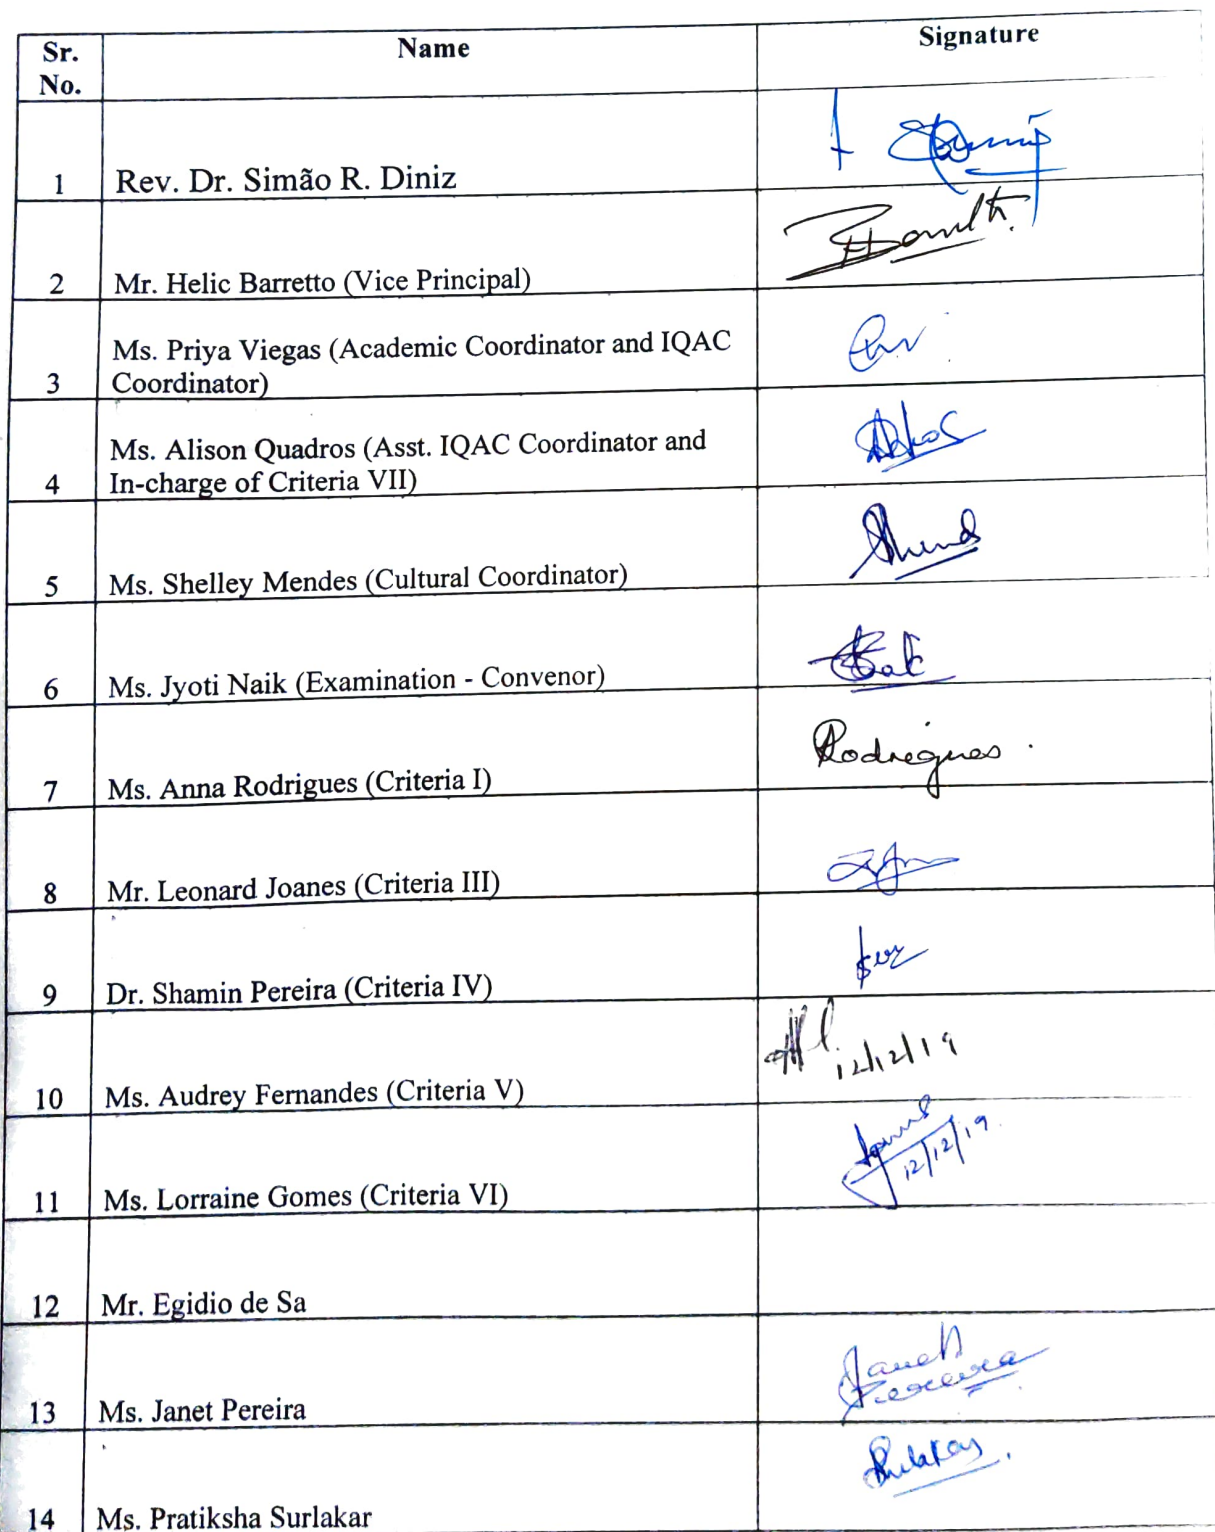 Sr. No.
Name
Signature
1
Rev. Dr. Simão R. Diniz
2
Mr. Helic Barretto (Vice Principal)
3
Ms. Priya Viegas (Academic Coordinator and IQAC
Coordinator)
4
Ms. Alison Quadros (Asst. IQAC Coordinator and
In-charge of Criteria VII)
5
Ms. Shelley Mendes (Cultural Coordinator)
6
Ms. Jyoti Naik (Examination - Convenor)
7
Ms. Anna Rodrigues (Criteria I)
Rodrigues
8
Mr. Leonard Joanes (Criteria III)
9
Dr. Shamin Pereira (Criteria IV)
10
Ms. Audrey Fernandes (Criteria V)
12/12/19
11
Ms. Lorraine Gomes (Criteria VI)
12/12/19
12
Mr. Egidio de Sa
13
Ms. Janet Pereira
Janet
Pereira
14
Ms. Pratiksha Surlakar